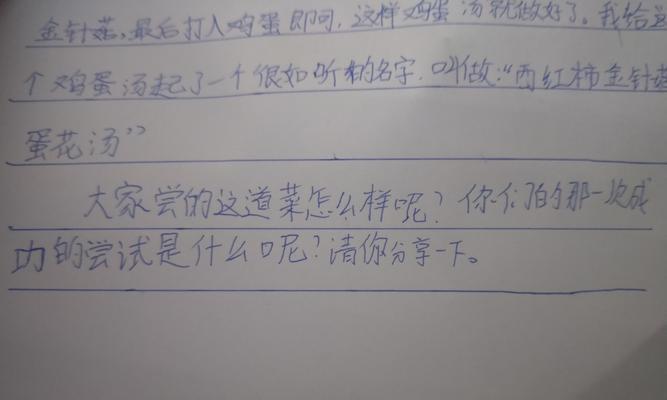 金针菇,最后打入鸡蛋即可,这样鸡蛋汤就做好了。我给这
个鸡蛋汤起了一个很好听的名字,叫做:“西红柿金针菇
蛋花汤”
大家尝的这道菜怎么样呢?你们的那一次成
功的尝试是什么呢?请你分享一下。